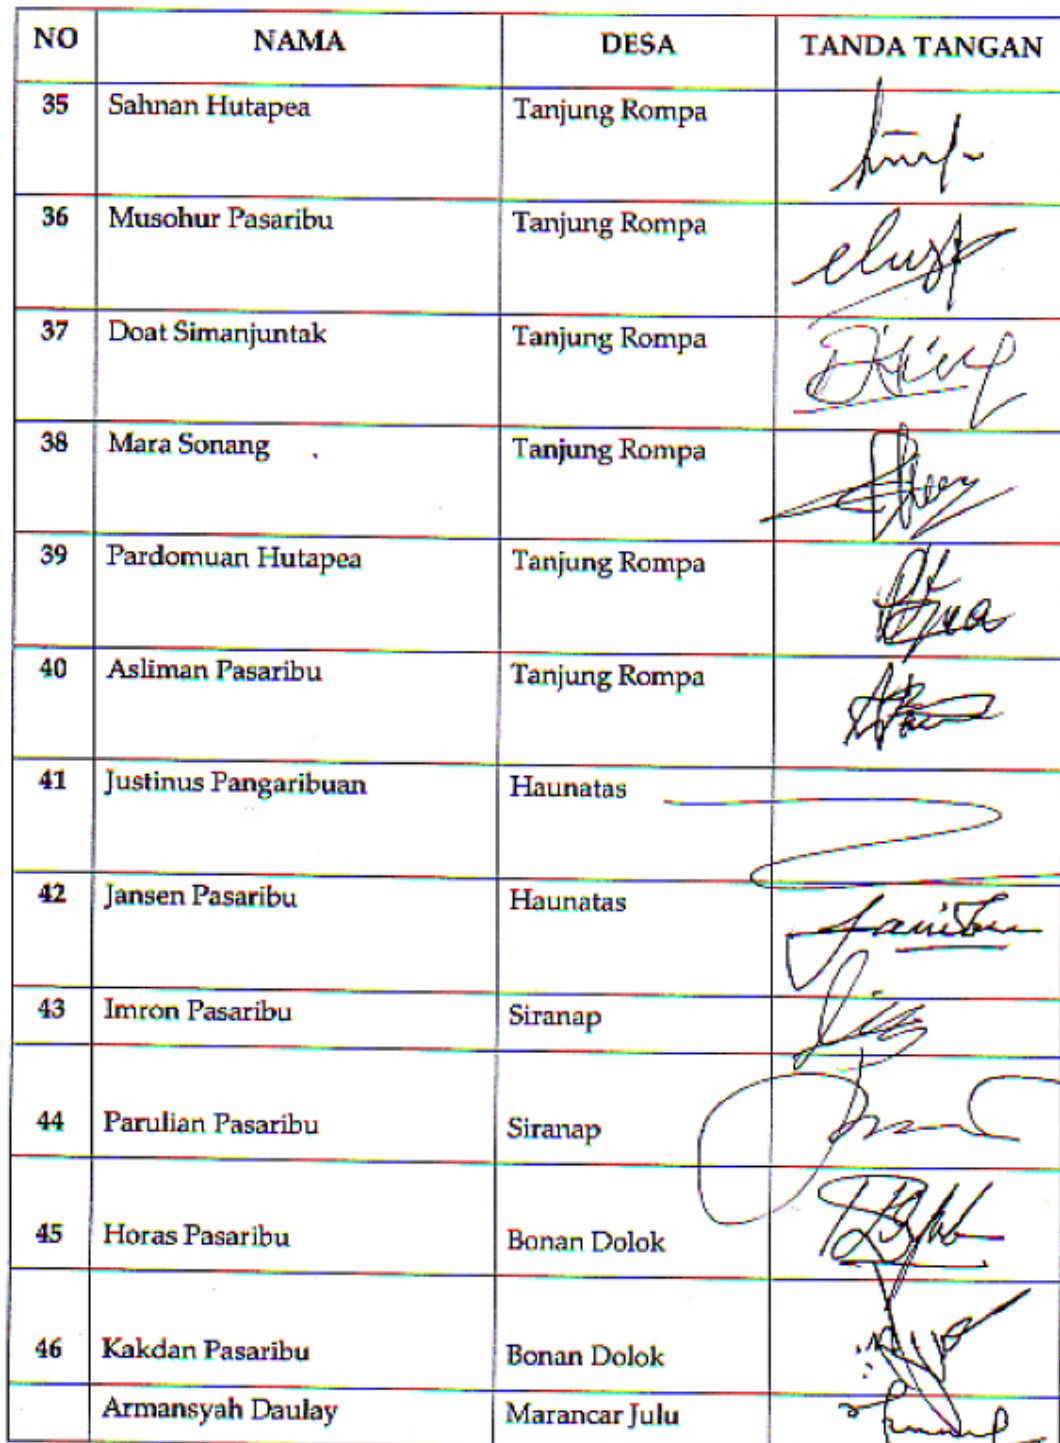 NO NAMA DESA TANDA TANGAN
35 Sahnan Hutapea Tanjung Rompa
36 Musohur Pasaribu Tanjung Rompa
37 Doat Simanjuntak Tanjung Rompa
38 Mara Sonang Tanjung Rompa
39 Pardomuan Hutapea Tanjung Rompa
40 Asliman Pasaribu Tanjung Rompa
41 Justinus Pangaribuan Haunatas
42 Jansen Pasaribu Haunatas
43 Imron Pasaribu Siranap
44 Parulian Pasaribu Siranap
45 Horas Pasaribu Bonan Dolok
46 Kakdan Pasaribu Bonan Dolok
Armansyah Daulay Marancar Julu